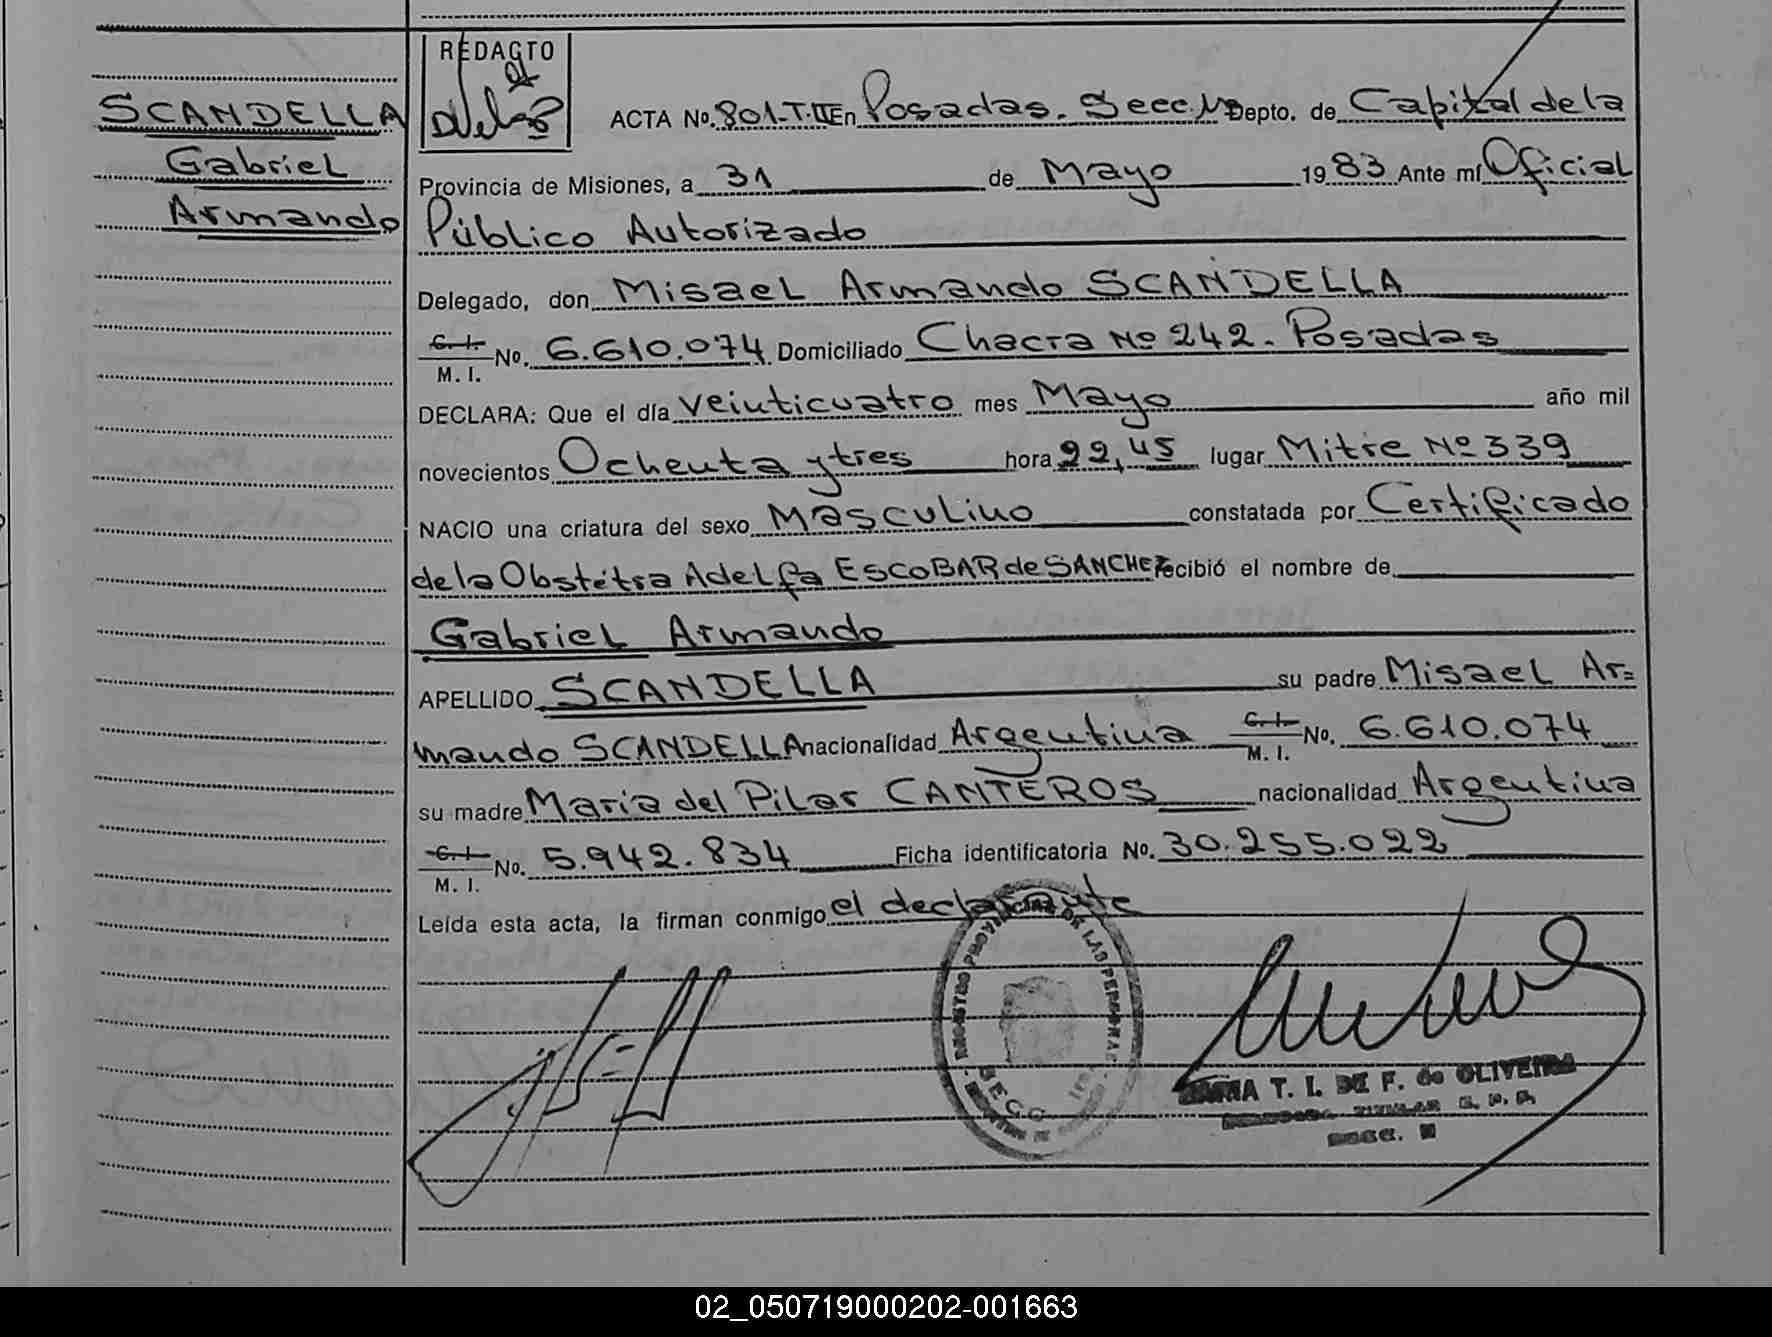 SCANDELLA
Gabriel
Armando
REDACTO
ACTA No. 801-T.II En Posadas. Secc. Depto. de Capital de la
Provincia de Misiones, a 31 de Mayo 1983 Ante mí Oficial
Público Autorizado
Delegado, don Misael Armando SCANDELLA
C. I.
M. I. No. 6.610.074 Domiciliado Chacra Nº 242. Posadas
DECLARA: Que el día veinticuatro mes Mayo año mil
novecientos Ochenta y tres hora 22,45 lugar Mitre Nº 339
NACIO una criatura del sexo Masculino constatada por Certificado
de la Obstétra Adelfa ESCOBAR de SANCHEZ recibió el nombre de
Gabriel Armando
APELLIDO SCANDELLA su padre Misael Ar=
mando SCANDELLA nacionalidad Argentina C. I. M. I. No. 6.610.074
su madre María del Pilar CANTEROS nacionalidad Argentina
C. I.
M. I. No. 5.942.834 Ficha identificatoria No. 30.255.022
Leída esta acta, la firman conmigo el declarante
REGISTRO PROVINCIAL DE LAS PERSONAS
SECC
T. I. DE F. de OLIVEIRA
SECC.
02_050719000202-001663